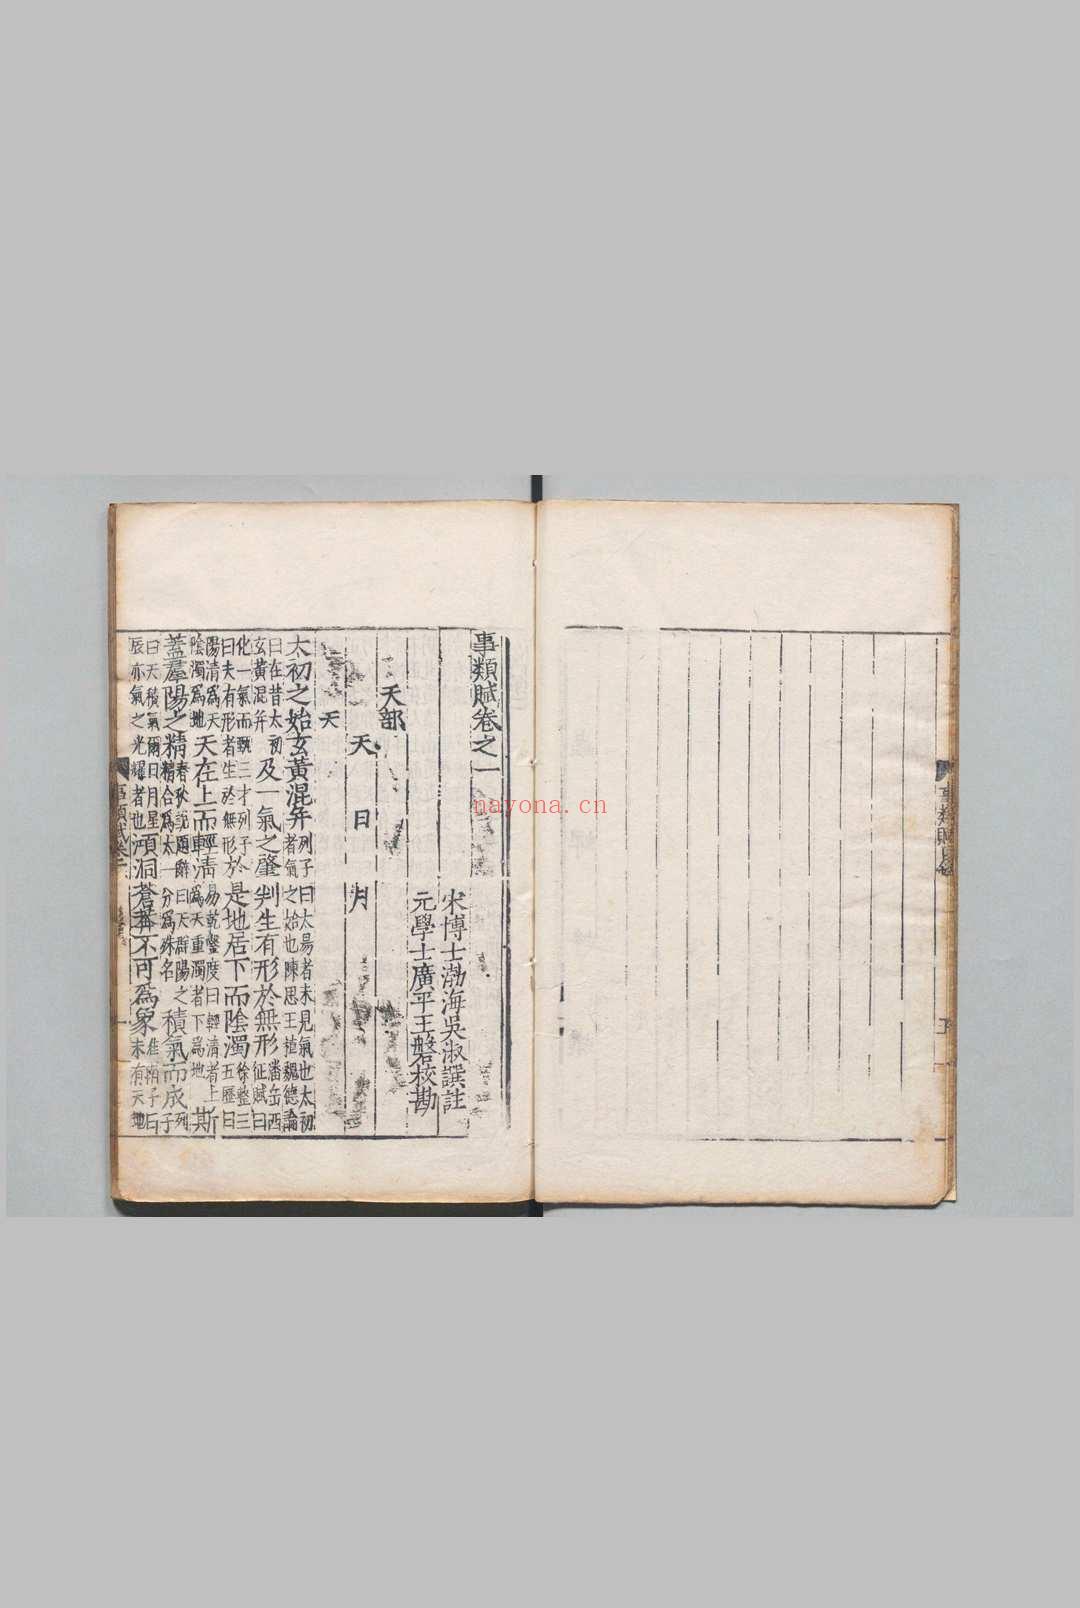 事類賦卷之一
宋博士渤海吳淑譔註
元學士廣平王磐校勘
天部
天 日 月
天
太初之始玄黃混并列子曰太易者未見氣也太初者氣之始也陳思王植魏德論
曰在昔太初玄黃混并及一氣之肇判生有形於無形潘岳西征賦曰
化一氣而甄三才列子曰夫有形者生於無形於是地居下而陰濁徐整三五歷曰
陽清為天陰濁為地天在上而輕清易乾鑿度曰輕清者上為天重濁者下為地斯
蓋羣陽之精春秋說題辭曰天群陽之精合為太一分為殊名積氣而成列子
曰天積氣爾日月星辰亦氣之光耀者也澒洞蒼莽不可為象淮南子曰未有天地
事類賦卷一
一
nayona.cn